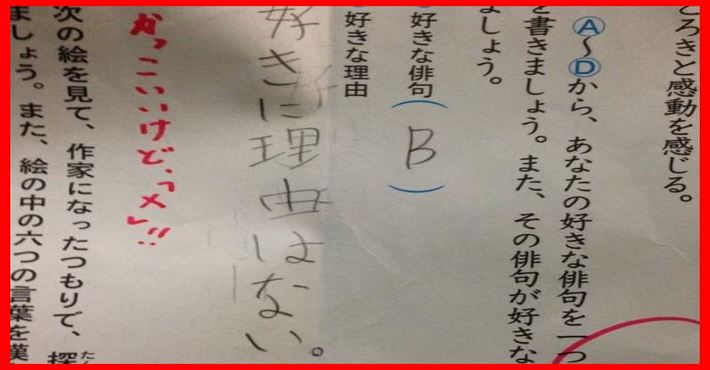 ろきと感動を感じる。
Ⓐ〜Ⓓから、あなたの好きな俳句を一つ
を書きましょう。また、その俳句が好きな
ましょう。
好きな俳句(B)
好きな理由
好きに理由はない。
かっこいいけど、「メ」!!
次の絵を見て、作家になったつもりで、探
たん
ましょう。また、絵の中の六つの言葉を漢